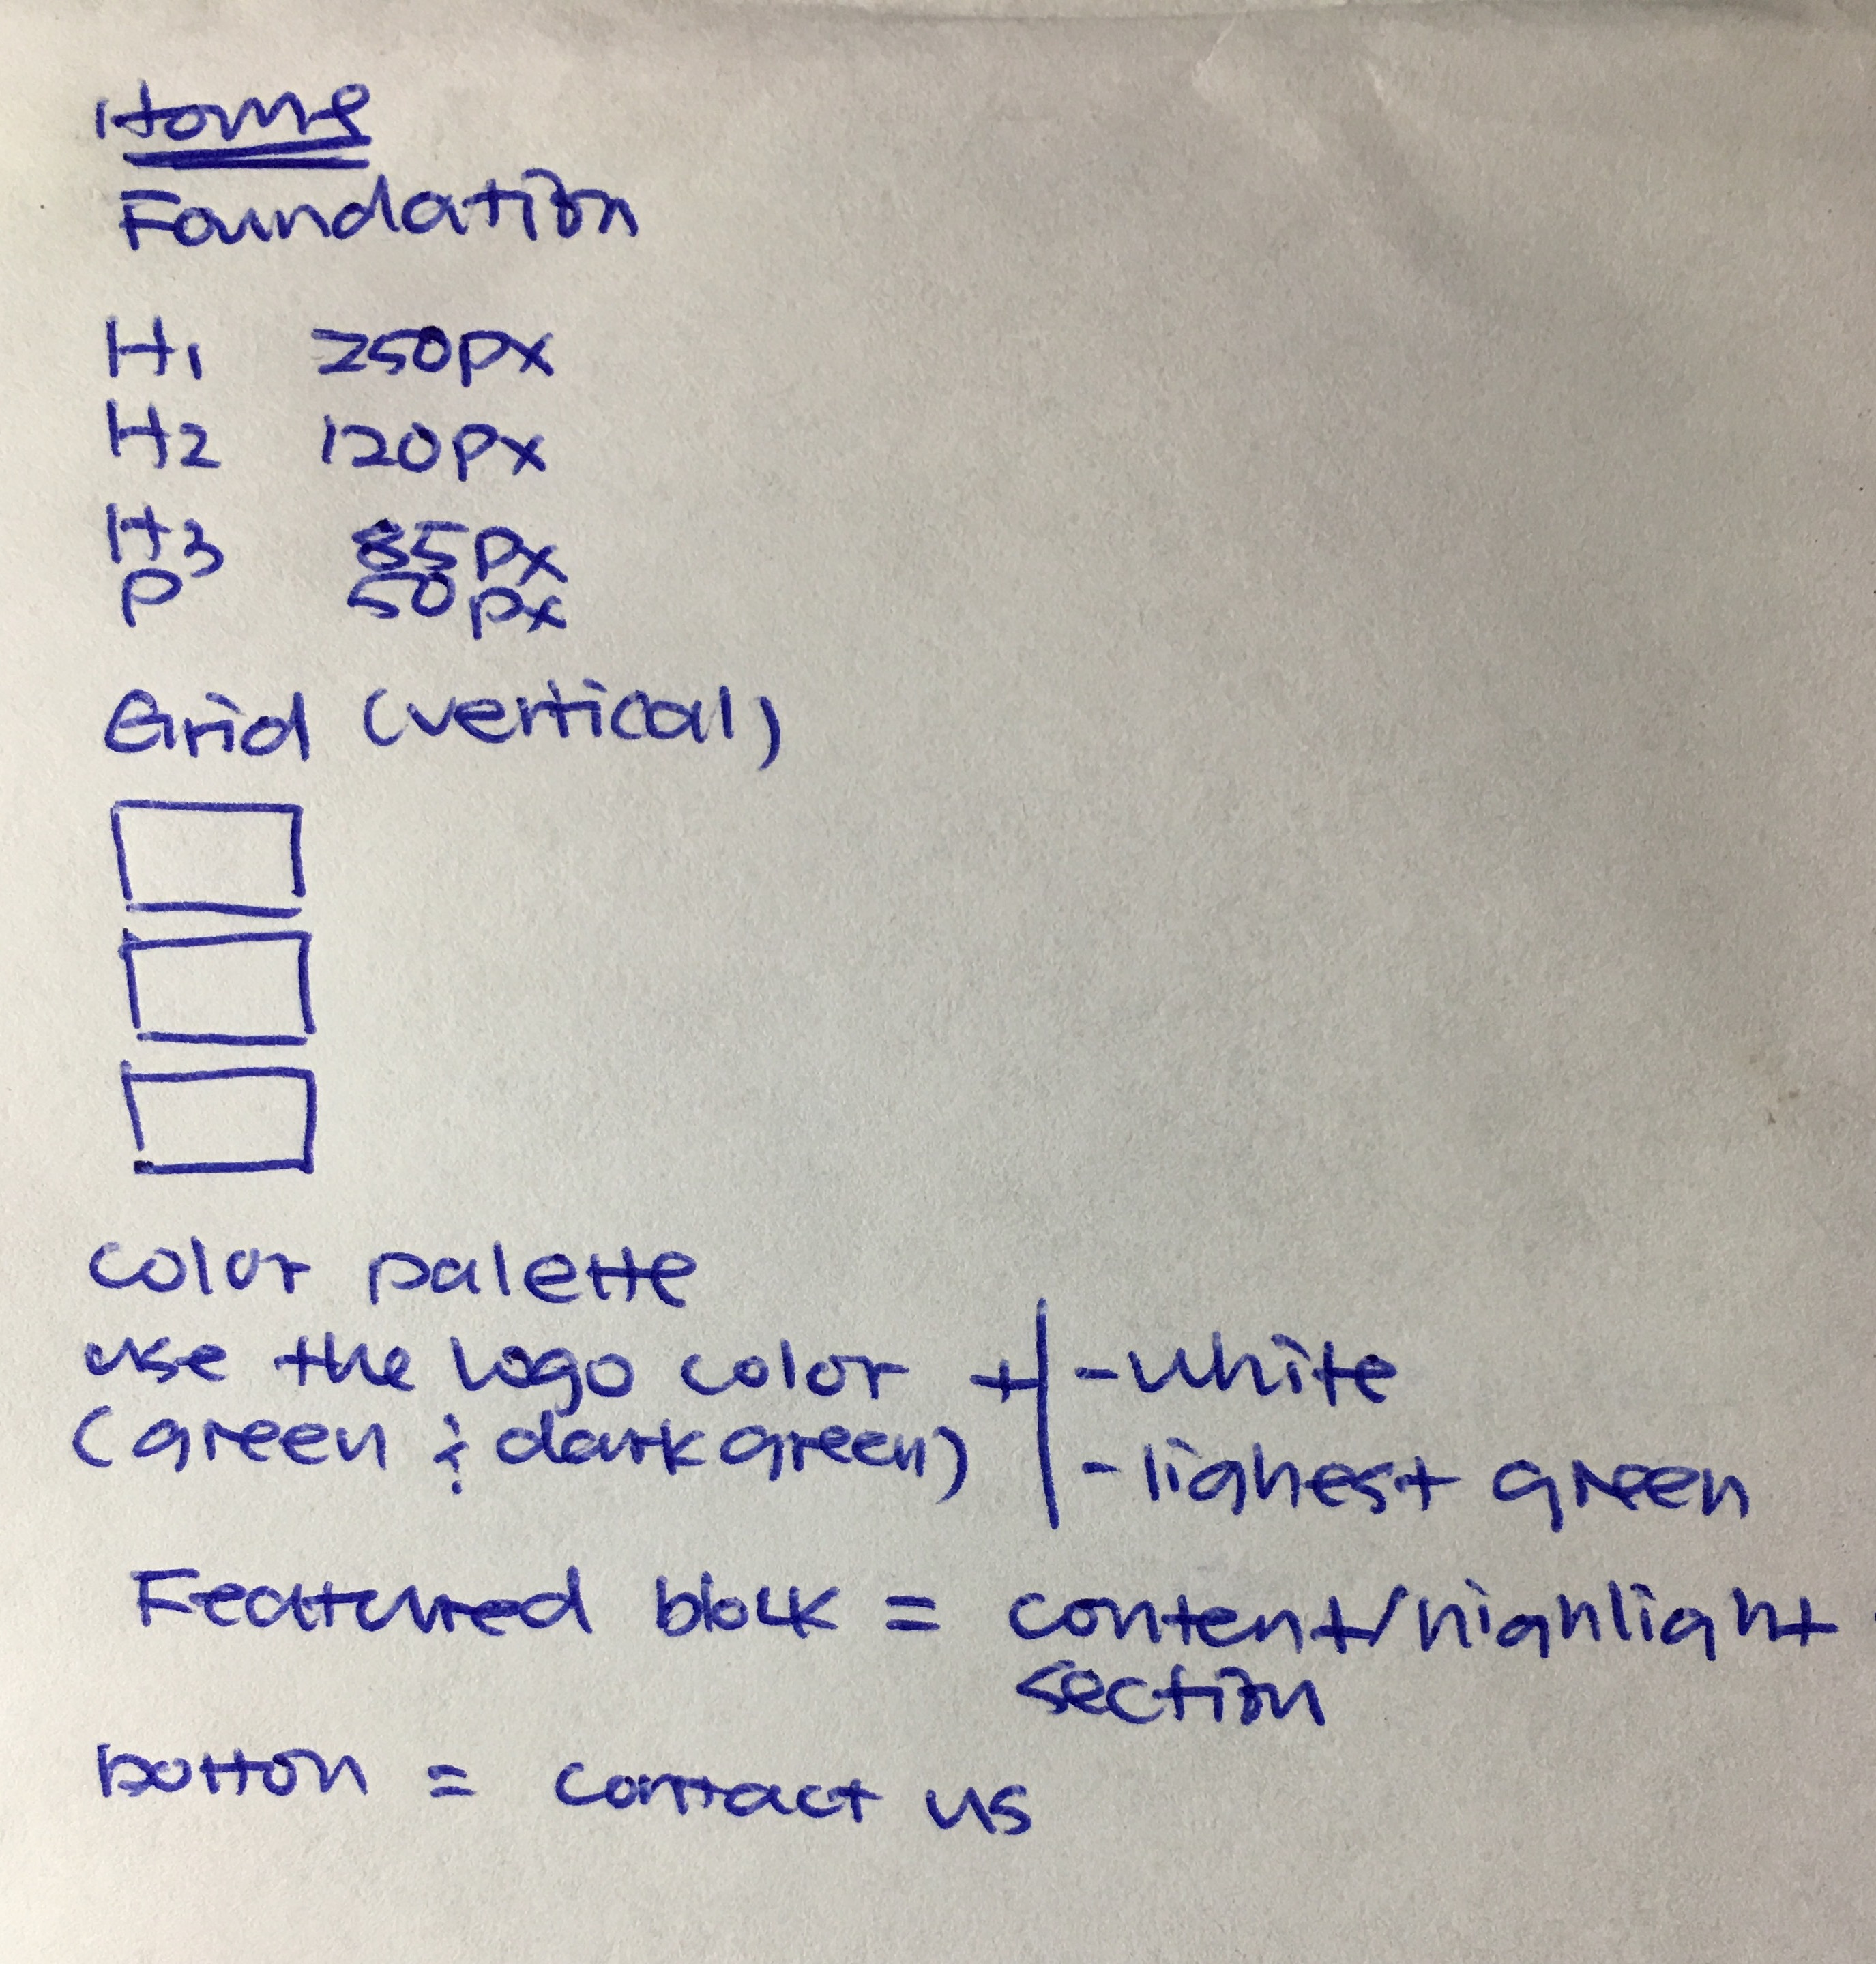 Home
Foundation
H1 250px
H2 120px
H3 85px
P 50px
Grid (vertical)
color palette
use the logo color + | - white
(green & dark green) | - lighest green
Featured block = content/highlight
section
botton = contact us